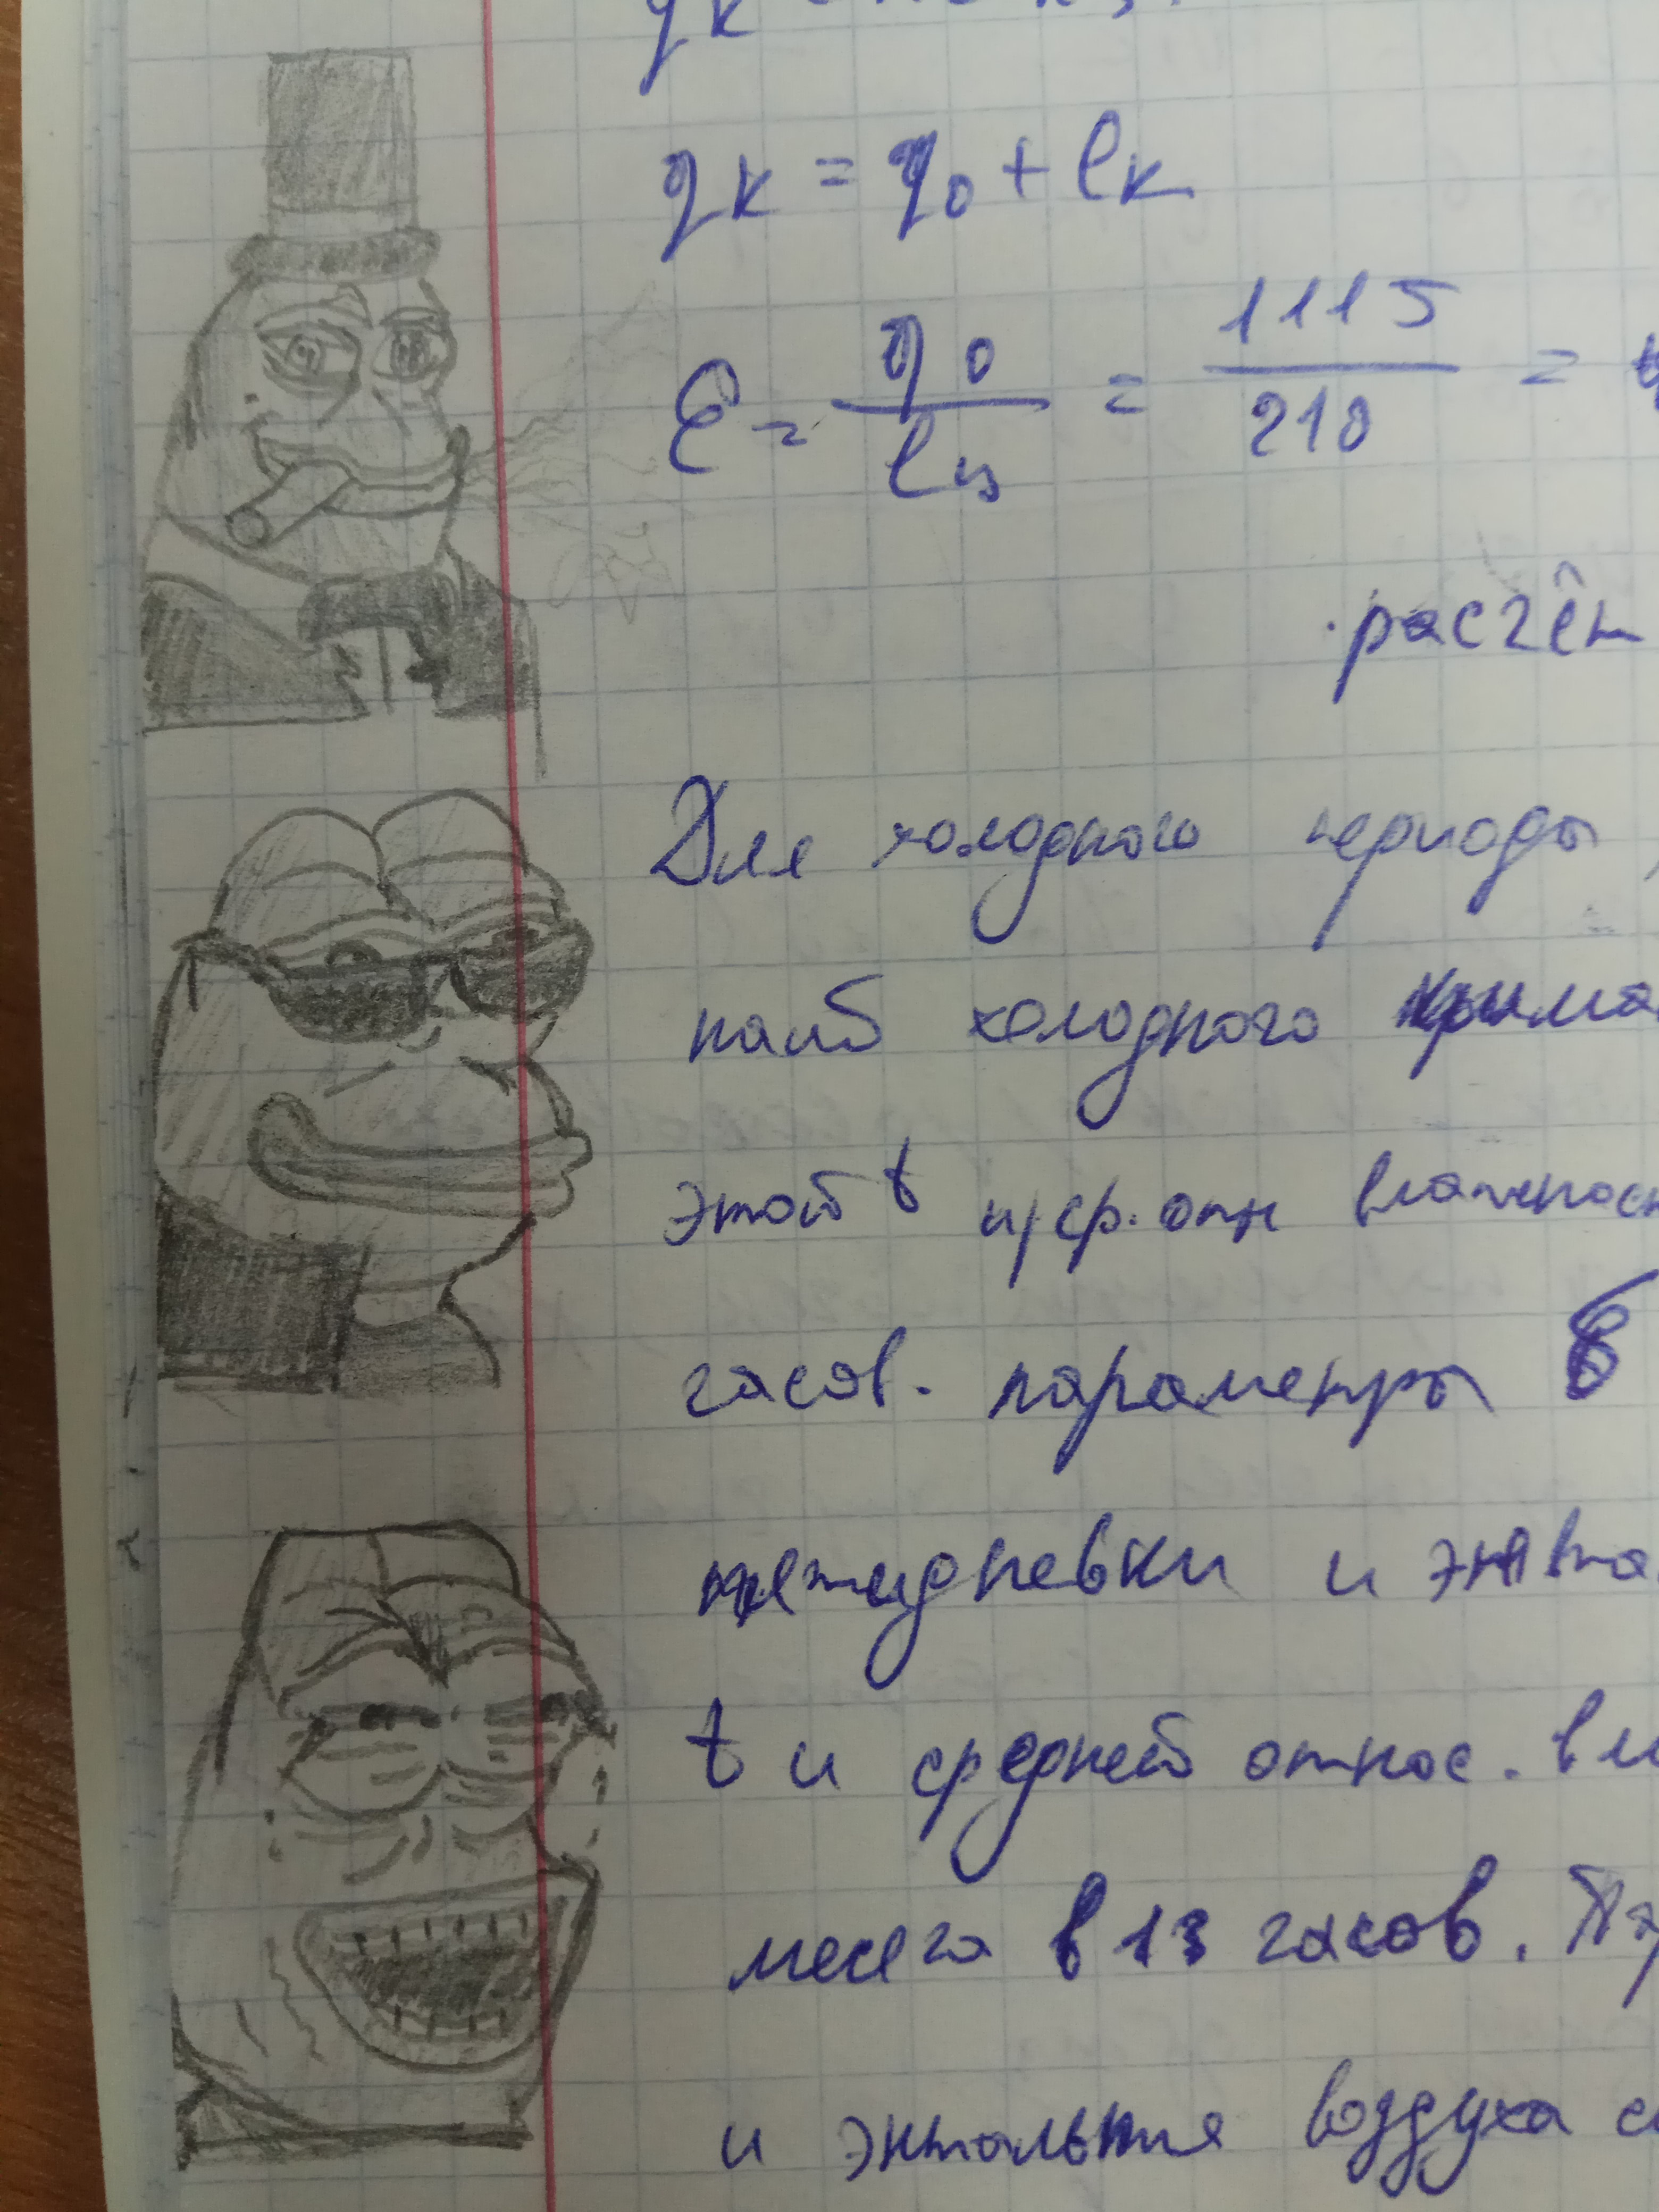 qк = q₀ + lк
ε = q₀ / lц = 1115 / 210 =
расчёт
Для холодного периоды
наиб холодного
этой t и/ср. отн влажнос
часов. параметры Б
пятидневки и энта
t и средней относ. вл
месяца в 13 часов. Па
и энтальпия воздуха с